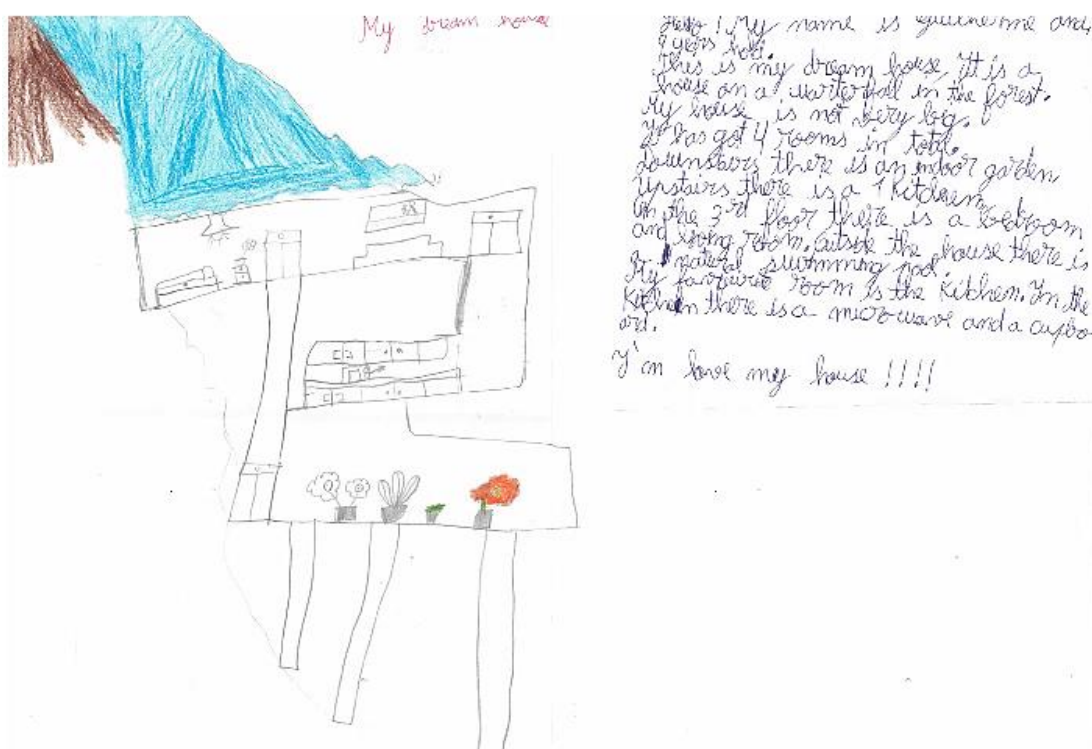 My dream house
Hello! My name is Guilherme and
9 years hold.
This is my dream house, It is a
house on a warterfall in the forest.
My house is not very big.
It has got 4 rooms in total.
Downstairs there is an indoor garden
Upstairs there is a 1 kitchen
In the 3rd floor there is a bedroom
and living room. Outside the house there is
natural swimming pool.
My favourite room is the Kitchen. In the
Kitchen there is a microwave and a cupbo
ard.
I'm love my house !!!!